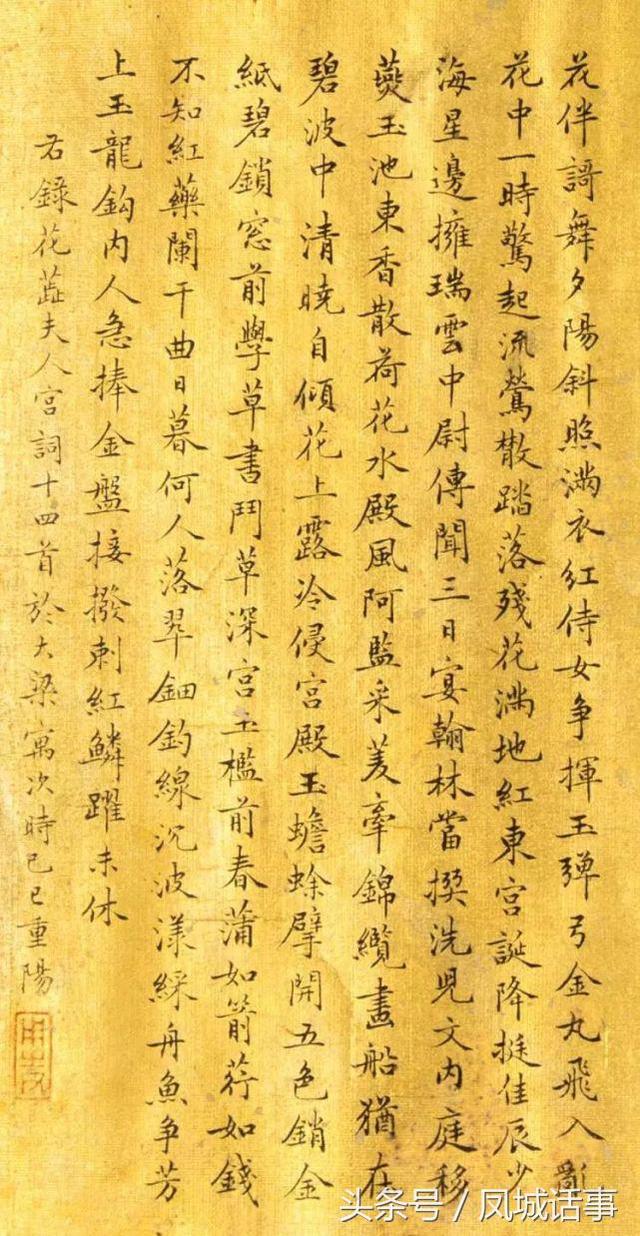 花伴謌舞夕陽斜照滿衣紅侍女爭揮玉彈弓金丸飛入亂
花中一時驚起流鶯散踏落殘花滿地紅東宮誕降挺佳辰少
海星邊擁瑞雲中尉傳聞三日宴翰林當撰洗兒文內庭移
燕玉池東香散荷花水殿風阿監采菱牽錦纜畫船猶在
碧波中清曉自傾花上露冷侵宮殿玉蟾蜍擘開五色銷金
紙碧鎖窓前學草書鬥草深宮玉檻前春蒲如箭荇如錢
不知紅藥闌干曲日暮何人落翠鈿釣線沉波漾綵舟魚爭芳
上玉龍鈎內人急捧金盤接撥剌紅鱗躍未休
右錄花蕋夫人宮詞十四首於大梁寓次時己巳重陽
头条号/凤城话事